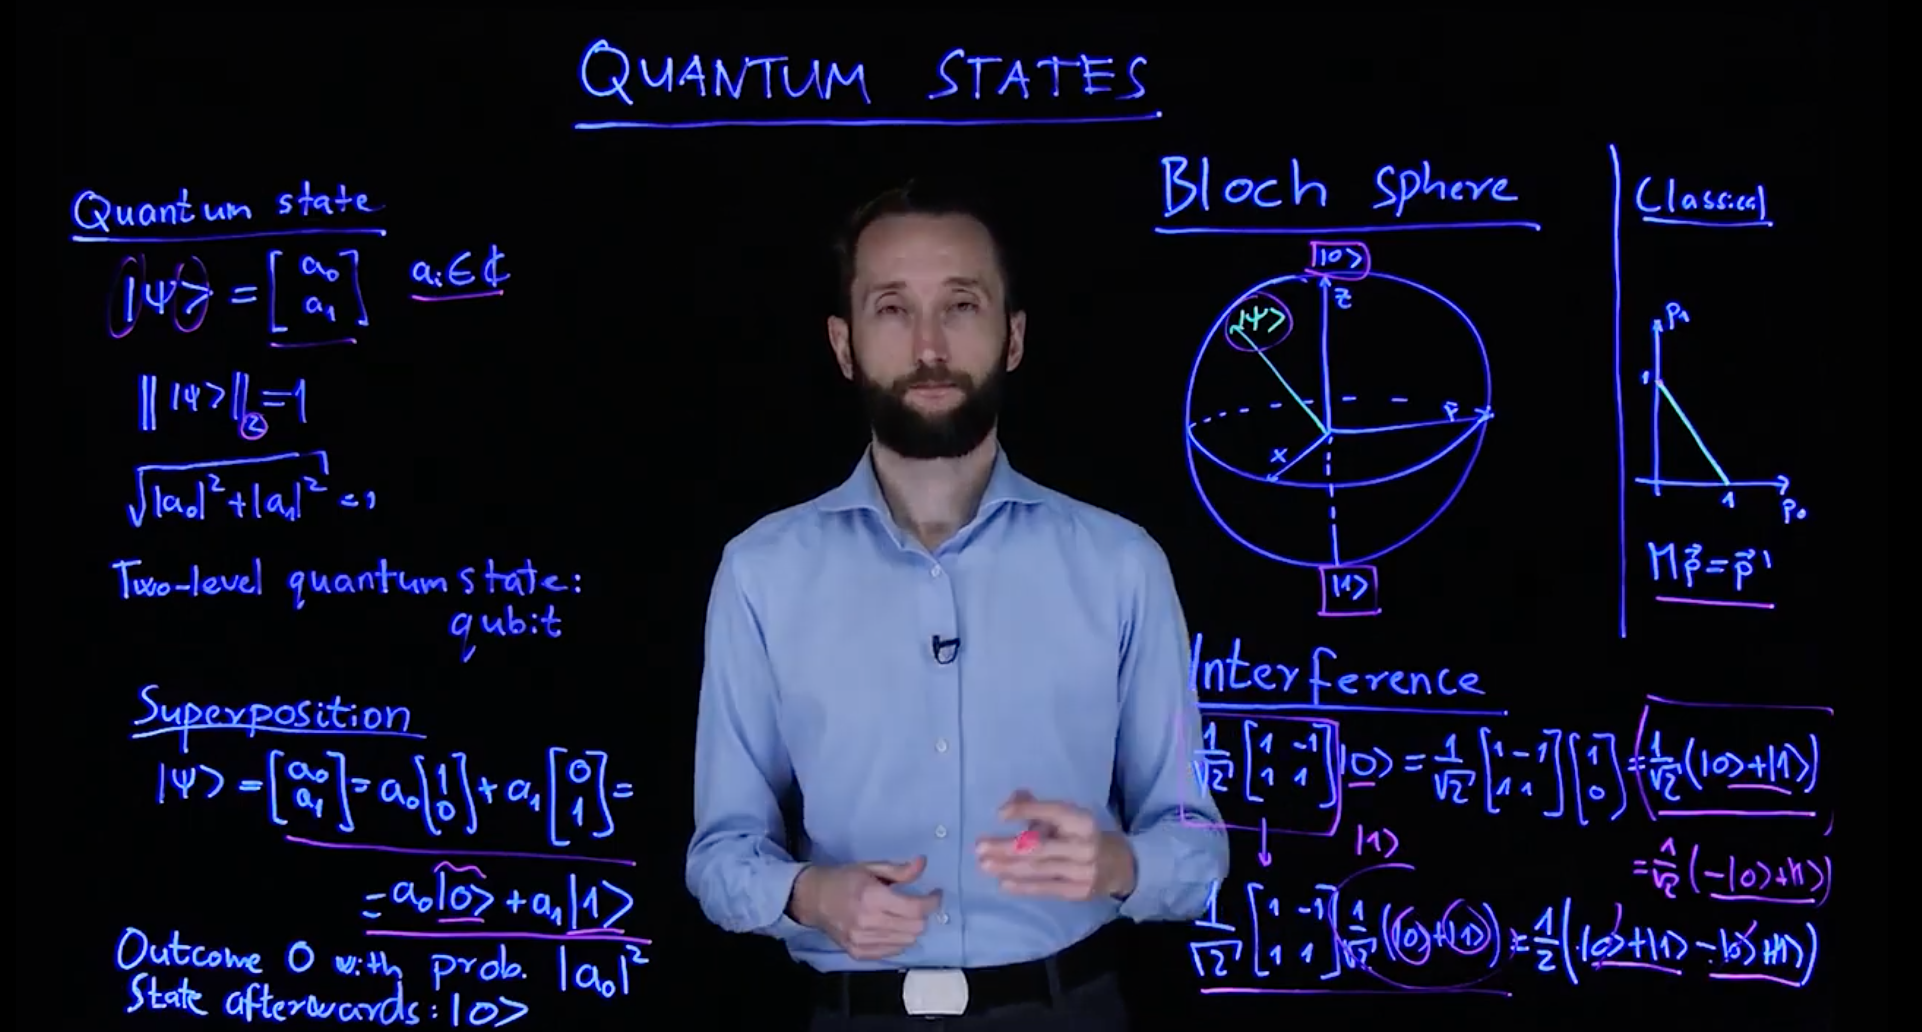 QUANTUM STATES
Quantum state
|ψ> = [a₀ a₁] aᵢ∈ℂ
‖|ψ>‖₂=1
√|a₀|²+|a₁|² =1
Two-level quantum state:
qubit
Superposition
|ψ> = [a₀ a₁] = a₀[1 0] + a₁[0 1] =
= a₀|0> + a₁|1>
Outcome 0 with prob. |a₀|²
State afterwards: |0>
Bloch sphere
|0>
z
|ψ>
x
|1>
Classical
p₁
1
1
p₀
Mp⃗=p⃗'
Interference
1/√2 [1 -1 1 1] |0> = 1/√2 [1 -1 1 1] [1 0] = 1/√2 (|0>+|1>)
|1>
= 1/√2 (-|0>+|1>)
1/√2 [1 -1 1 1] 1/√2 (|0>+|1>) = 1/2 (|0>+|1> -|0>+|1>)